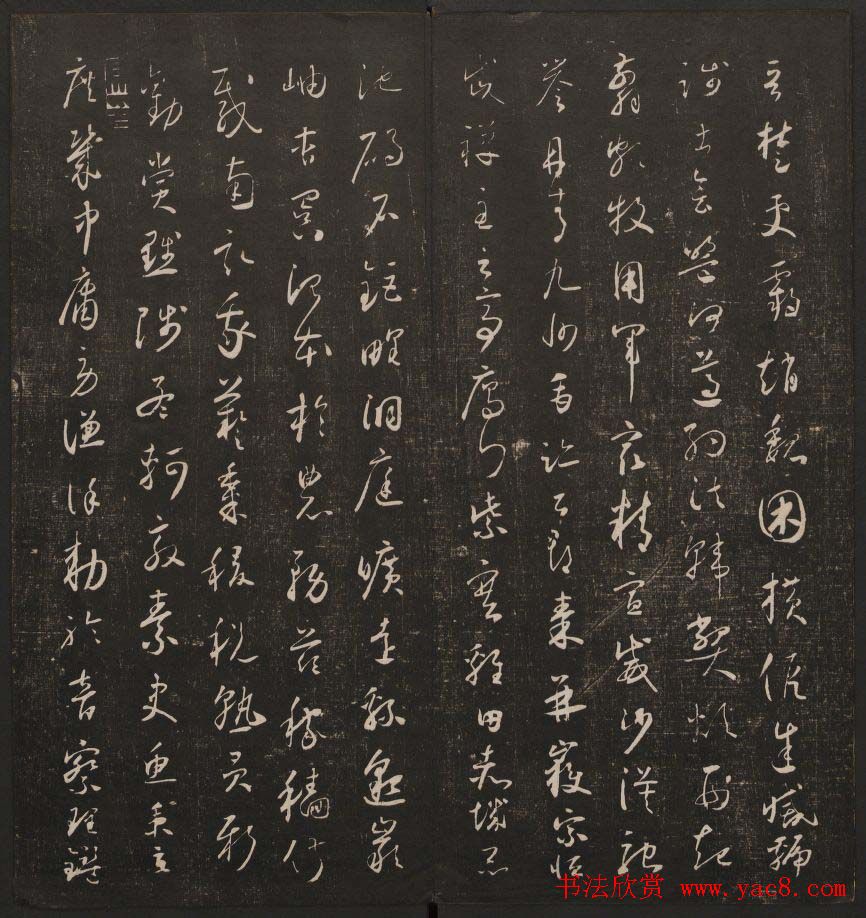 晉楚更霸趙魏困橫假途滅虢
踐土會盟何遵約法韓弊煩刑起
翦頗牧用軍最精宣威沙漠馳
譽丹青九州禹跡百郡秦并嶽宗恆
岱禪主云亭雁門紫塞雞田赤城昆
池碣石鉅野洞庭曠遠緜邈巖
岫杳冥治本於農務茲稼穡俶
載南畝我藝黍稷稅熟貢新
勸賞黜陟孟軻敦素史魚秉直
庶幾中庸勞謙謹敕聆音察理鑑
书法欣赏 www.yac8.com